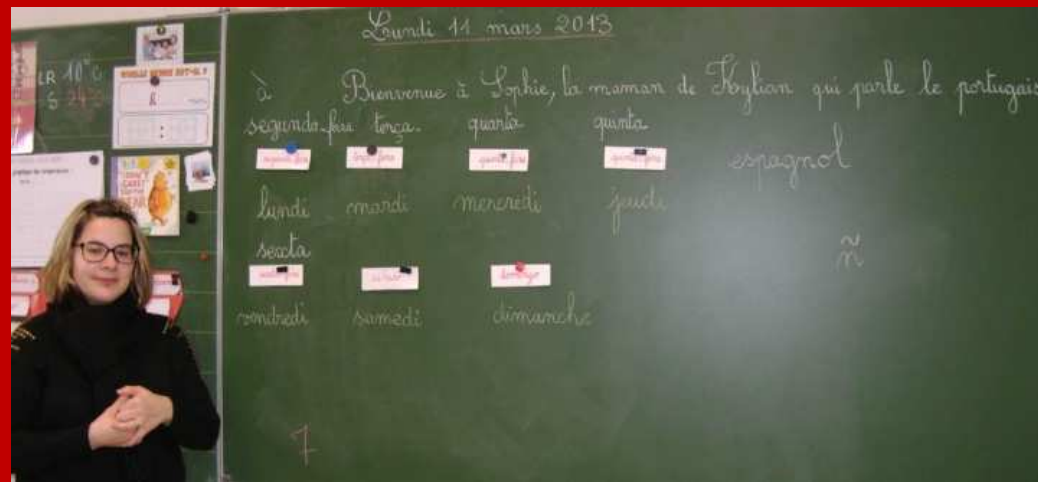 Lundi 11 mars 2013
à Bienvenue à Sophie, la maman de Kylian qui parle le portugais
segunda-feira terça quarta quinta
segunda-feira terça-feira quarta-feira quinta-feira
espagnol
lundi mardi mercredi jeudi
ñ
sexta
sexta-feira sábado domingo
vendredi samedi dimanche
7
LR 10°C
S 24°C
QUELLE HEURE EST-IL ?